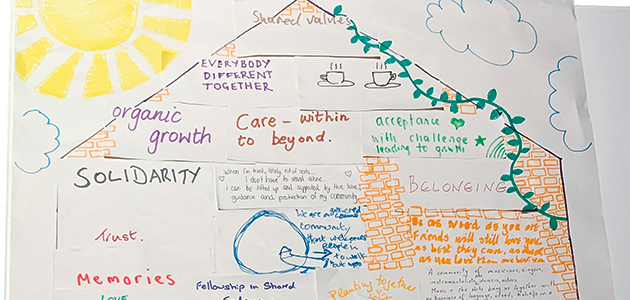 Shared values
EVERYBODY
DIFFERENT
TOGETHER
organic
growth
Care - within
to beyond.
acceptance
with challenge
leading to growth
SOLIDARITY
When I'm tired, lonely, out of sorts...
I don't have to stand alone.
I can be lifted up and supported by the love,
guidance and protection of my community
BELONGING
Trust.
We are a
community,
that welcomes
people in
to walk
Be as weird as you are
friends will still love you
as best they can, as
as you love them
Memories
LOVE
Fellowship in Shared
Planting together
A community of musicians, singers,
instrumentalists, dancers,